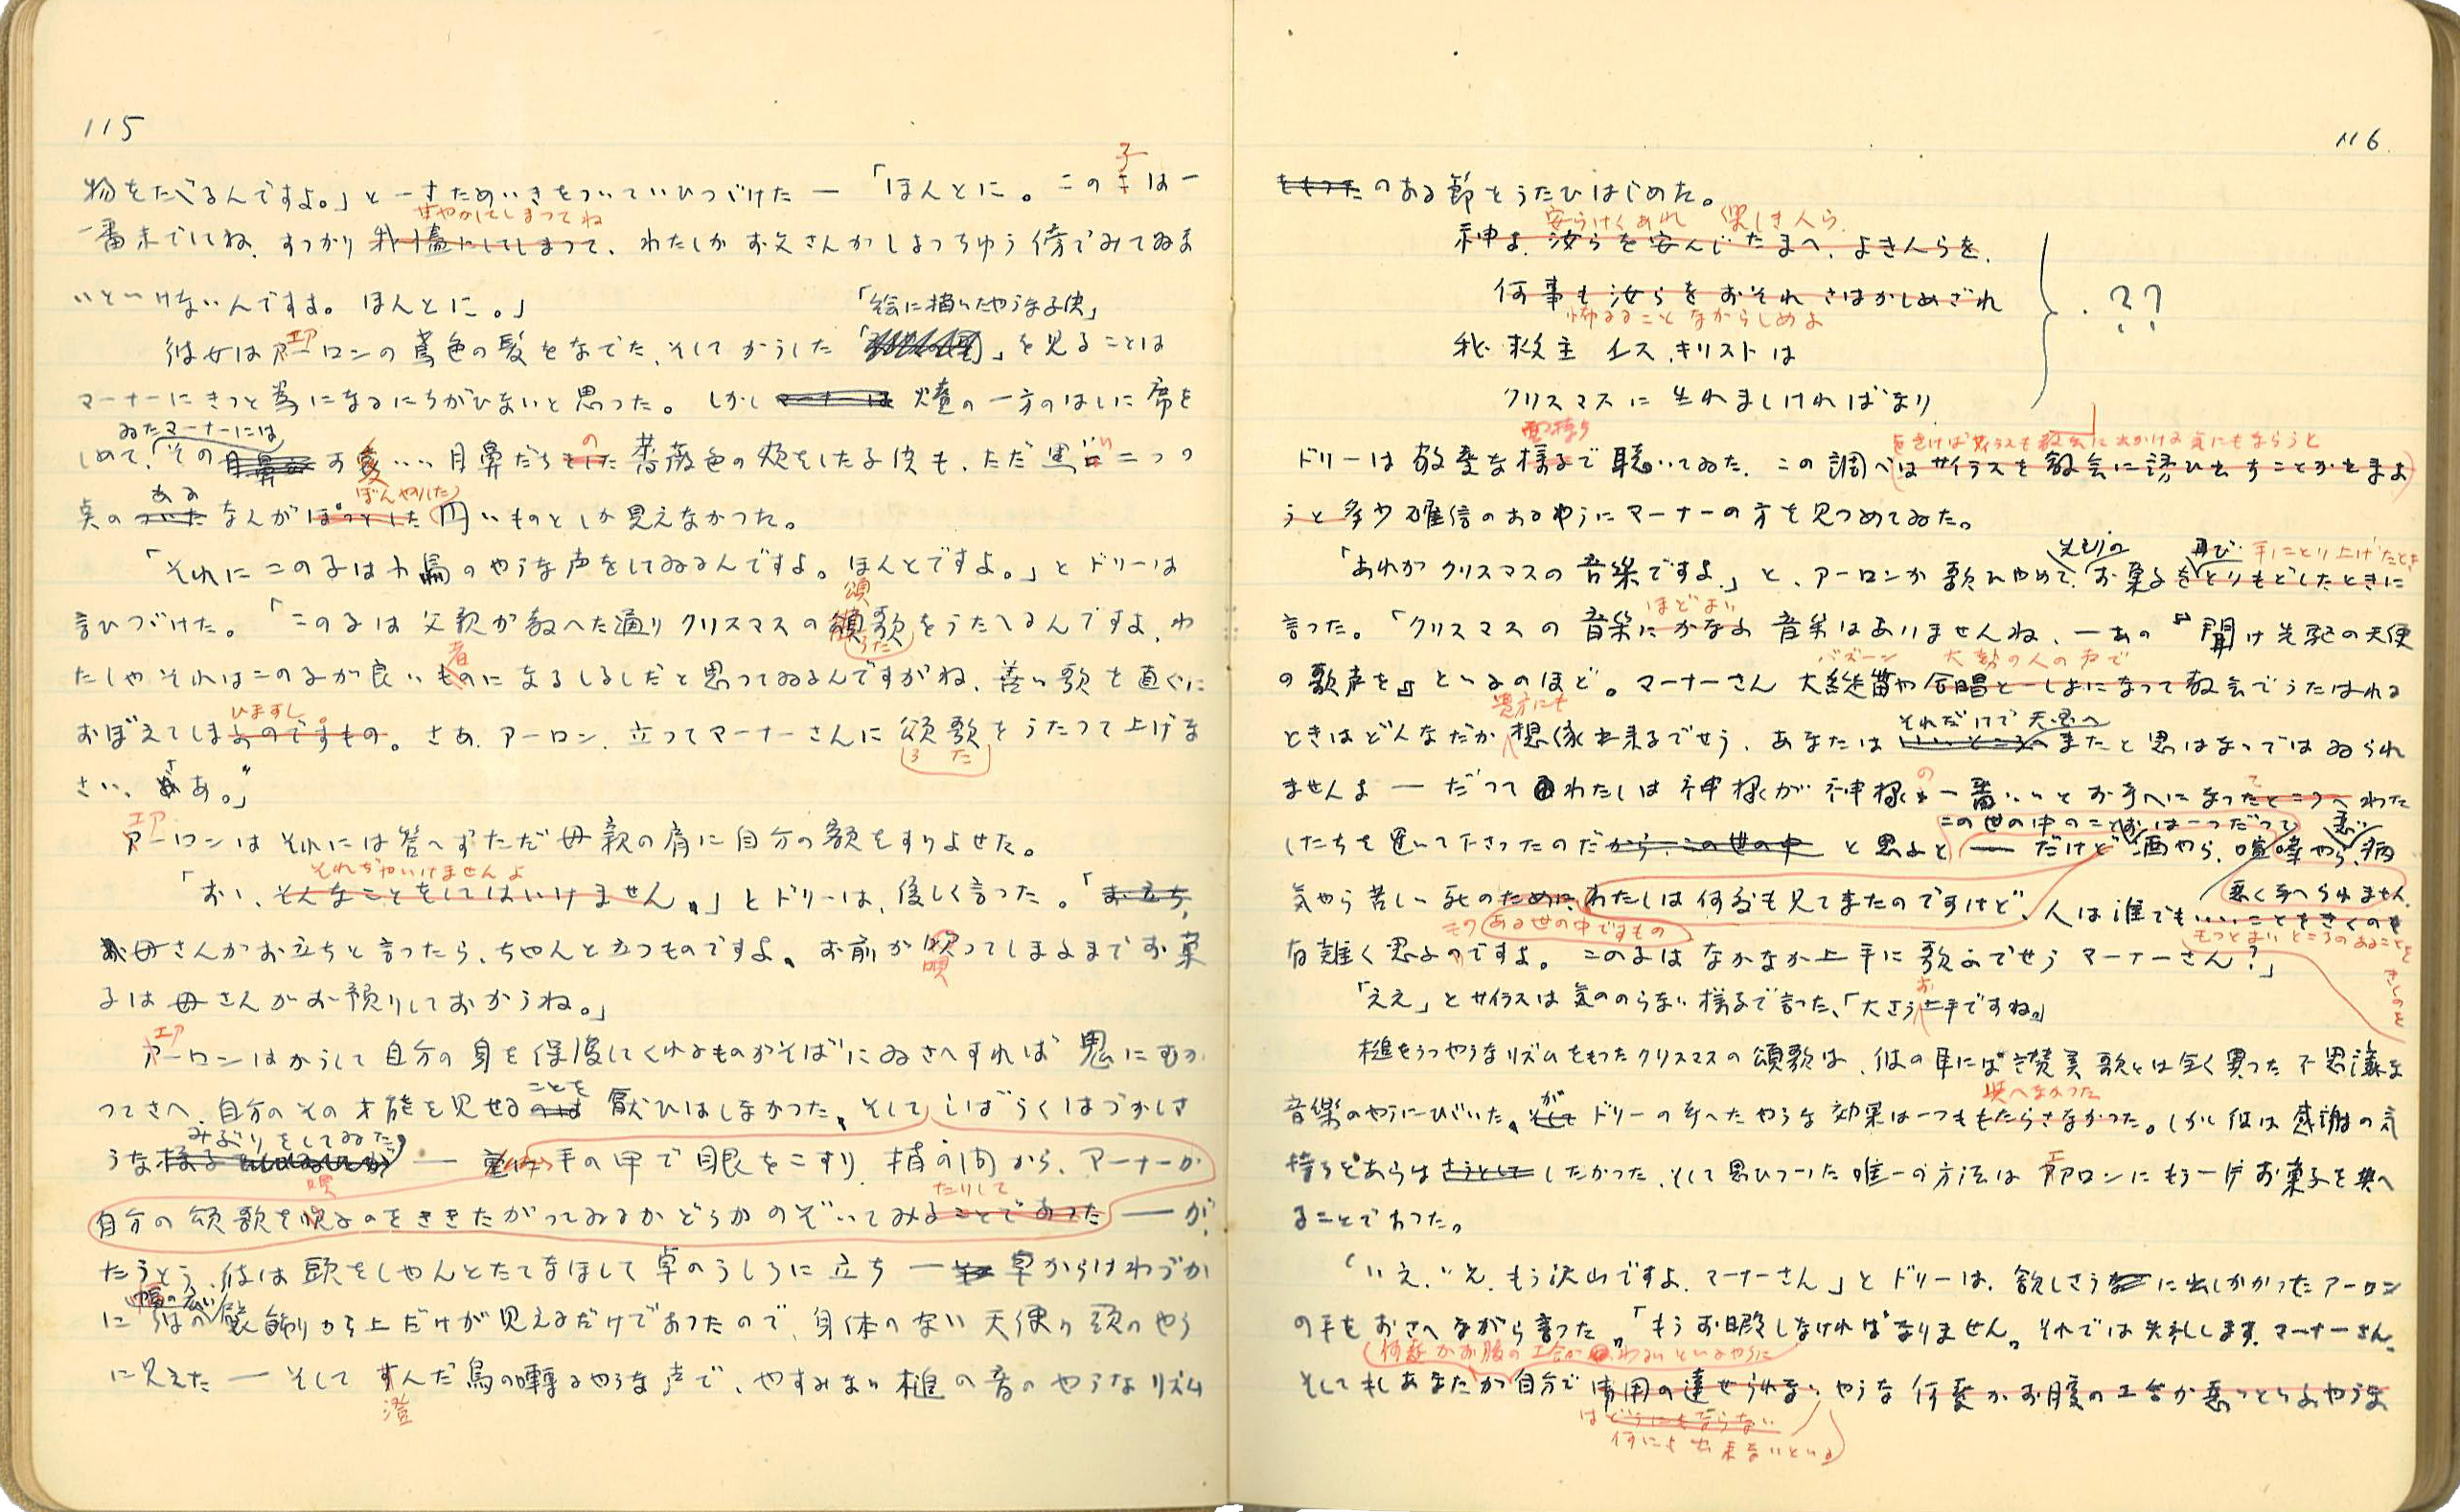 115
子
物をたべるんですよ。」と一寸ためいきをついていひつづけた ― 「ほんとに。この子は一
甘やかしてしまつてね
一番末でしてね、すつかり我儘にしてしまつて、わたしかお父さんかしよつちゆう傍でみてゐな
いといけないんですよ。ほんとに。」
「絵に描いたやうな子供」
エア
彼女はアーロンの鳶色の髪をなでた、そしてかうした「」を見ることは
マーナーにきつと為になるにちがひないと思つた。しかしマーナーは 煖の一方のはしに席を
ゐたマーナーには
しめて、その目鼻 可愛いい目鼻だちをした薔薇色の頬をした子供も、ただ黒い二つの
の
ある
ぼんやりした
点のついたなんがぼつとした円いものとしか見えなかつた。
「それにこの子は小鳥のやうな声をしてゐるんですよ。ほんとですよ。」とドリーは
頌
言ひつづけた。「この子は父親が教へた通りクリスマスの頌歌をうたへるんですよ、わ
うた
者
たしやそれはこの子が良いものになるしるしだと思つてゐるんですがね、善い歌を直ぐに
ひますし。
おぼえてしまふのですもの。さあ、アーロン、立つてマーナーさんに頌歌をうたつて上げな
うた
さい、さあ。」
エア
アーロンはそれには答へずただ母親の肩に自分の顔をすりよせた。
それぢやいけませんよ
「おい、そんなことをしてはいけません。」とドリーは、優しく言つた。「お立ち、
お母さんがお立ちと言つたら、ちやんと立つものですよ。お前が唄つてしまふまでお菓
唄
子は母さんがお預りしておかうね。」
エア
アーロンはかうして自分の身を保護してくれるものがそばにゐさへすれば鬼にむか
ことを
つてさへ、自分のその才能を見せるのは厭ひはしなかつた。そしてしばらくはづかしさ
みぶりをしてゐた
うな様子 ― 手の甲で眼をこすり、指の間から、マーナーが
唄
たりして
自分の頌歌を唄ふのをききたがつてゐるかどうかのぞいてみることであつた ― が、
たうとう、彼は頭をしやんとたてなほして卓のうしろに立ち ― 卓からはわづか
幅の広い
に彼の襞飾から上だけが見えるだけであつたので、身体のない天使の頭のやう
に見えた ― そしてすんだ鳥の囀るやうな声で、やすみない槌の音のやうなリズム
澄
116
をもつたのある節をうたひはじめた。
安らけくあれ 優しき人ら、
神よ、汝らを安んじたまへ、よき人らを、
何事も汝らをおそれさはがしめざれ
怖るることなからしめよ
我 救主 イエス、キリストは
クリスマスに生れましければなり
??
面持ち
をきけばサイラスも教会に出かける気にもならうと
ドリーは敬虔な様子で聴いてゐた、この調べはサイラスを教会に誘ひ出すことができよ
うと多少確信のあるやうにマーナーの方を見つめてゐた。
再び
手にとり上げたとき
「あれがクリスマスの音楽ですよ。」と、アーロンが歌ひやめて、お菓子をとりもどしたときに
ほどよい
言つた。「クリスマスの音楽にかなふ音楽はありませんね、―あの『聞け先駆の天使
バズーン
大勢の人の声で
の歌声を』といふのほど。マーナーさん 大縦笛や合唱と一しよになつて教会でうたはれる
貴方にも
それだけで天国へ
ときはどんなだか想像出来るでせう、あなたはいいところへきたと思はなつではゐられ
ませんよ ― だつてわたしは神様が神様の一番いいとお考へになつたところへわた
この世の中のこと
したちを置いて下さつたのだから、この世の中と思ふと ― だけど酒やら、喧嘩やら、病
悪い
気やら苦しい死のために、わたしは何度も見てきたのですけど、人は誰でもいいことをきくのを
悪く考へられません
もつとよいところのあることを
きくのを
ある世の中ですもの
有難く思ふのですよ。この子はなかなか上手に歌ふでせう マーナーさん?」
「ええ」とサイラスは気ののらない様子で言つた、「大さうお上手ですね。」
槌をうつやうなリズムをもつたクリスマスの頌歌は、彼の耳には讃美歌とは全く異つた不思議な
与へなかつた
音楽のやうにひびいた。が ドリーの考へたやうな効果は一つももたらさなかつた。しかし彼は感謝の気
持ちをあらはさうとしてしたかつた、そして思ひついた唯一の方法はアアロンにもう一ケお菓子を与へ
エ
ることであつた。
「いえ、いえ、もう沢山ですよ、マーナーさん」とドリーは、欲しさうに出しかかつたアーロン
の手をおさへながら言つた。「もうお暇しなければなりません。それでは失礼します、マーナーさん、
何だかお腹の工合がわるいといふやうに
そしてもしあなたが自分で用の達せられない、やうな何度かお腹の工合が悪いといふやうな
はどうにもならない
何にも出来ないといふ